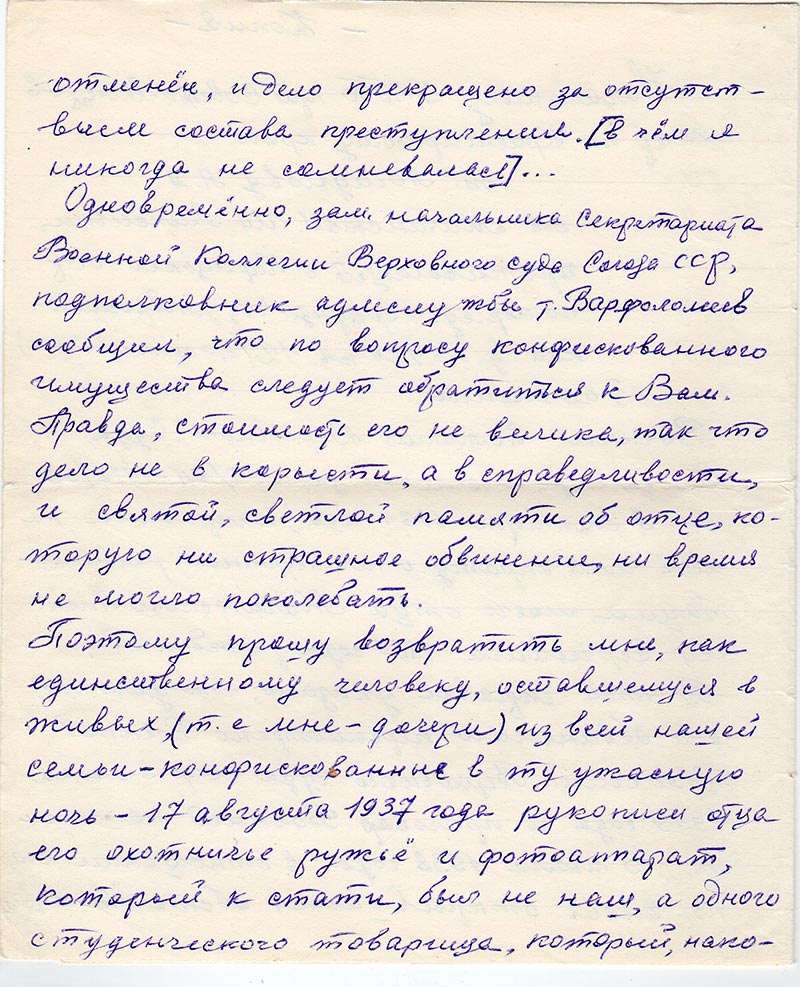 отменён, и дело прекращено за отсутст-
вием состава преступления. [в чём я
никогда не сомневалась]...
Одновремённо, зам. начальника Секретариата
Военной Коллегии Верховного суда Союза ССР,
подполковник адмслужбы т. Варфоломеев
сообщил, что по вопросу конфискованного
имущества следует обратиться к Вам.
Правда, стоимость его не велика, так что
дело не в корысти, а в справедливости,
и святой, светлой памяти об отце, ко-
торую ни страшное обвинение, ни время
не могло поколебать.
Поэтому прошу возвратить мне, как
единственному человеку, оставшемуся в
живых, (т. е мне - дочери) из всей нашей
семьи - конфискованные в ту ужасную
ночь - 17 августа 1937 года рукописи отца
его охотничье ружьё и фотоаппарат,
который к стати, был не наш, а одного
студенческого товарища, который, нахо-